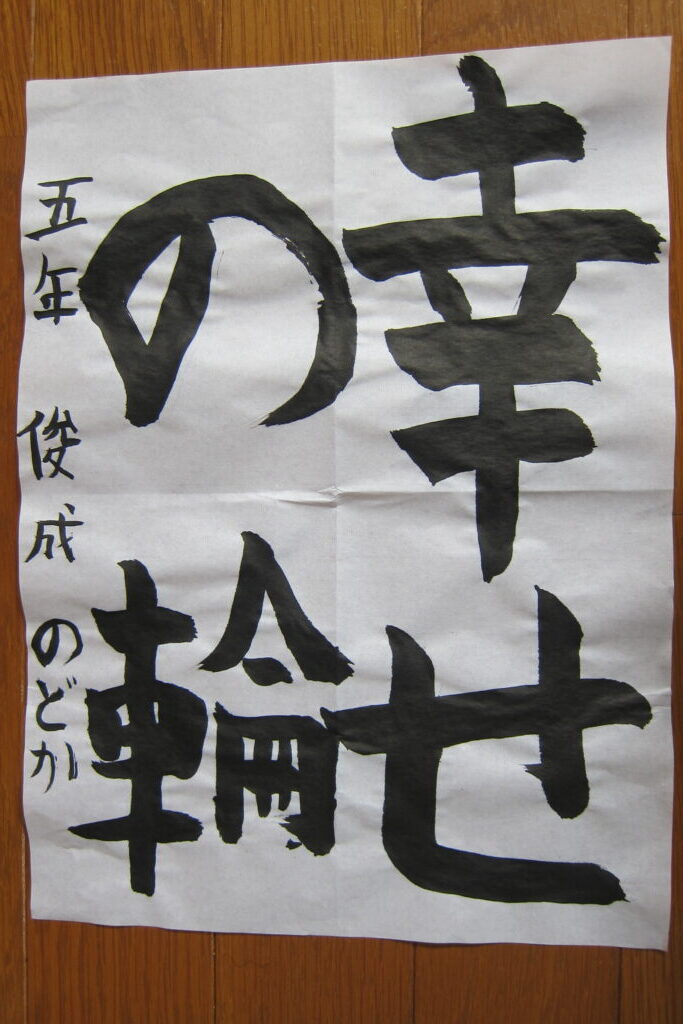 幸せ
の輪
五年 俊成 のどか